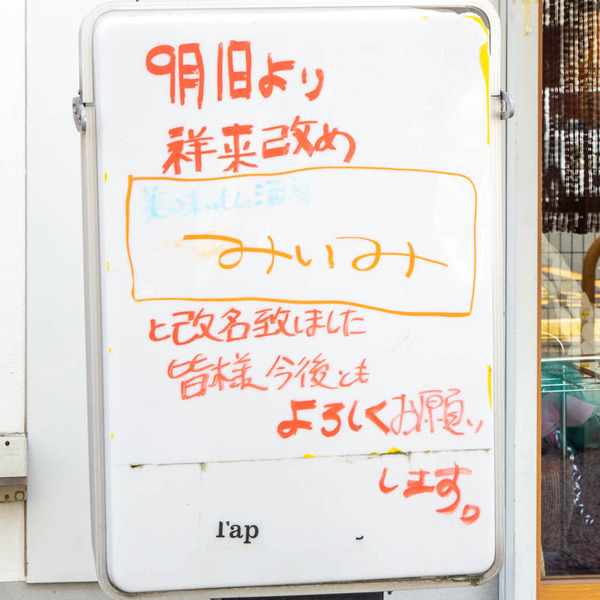 9月1日より
祥来改め
みいみ
と改名致しました
皆様今後とも
よろしくお願い
します。
Tap